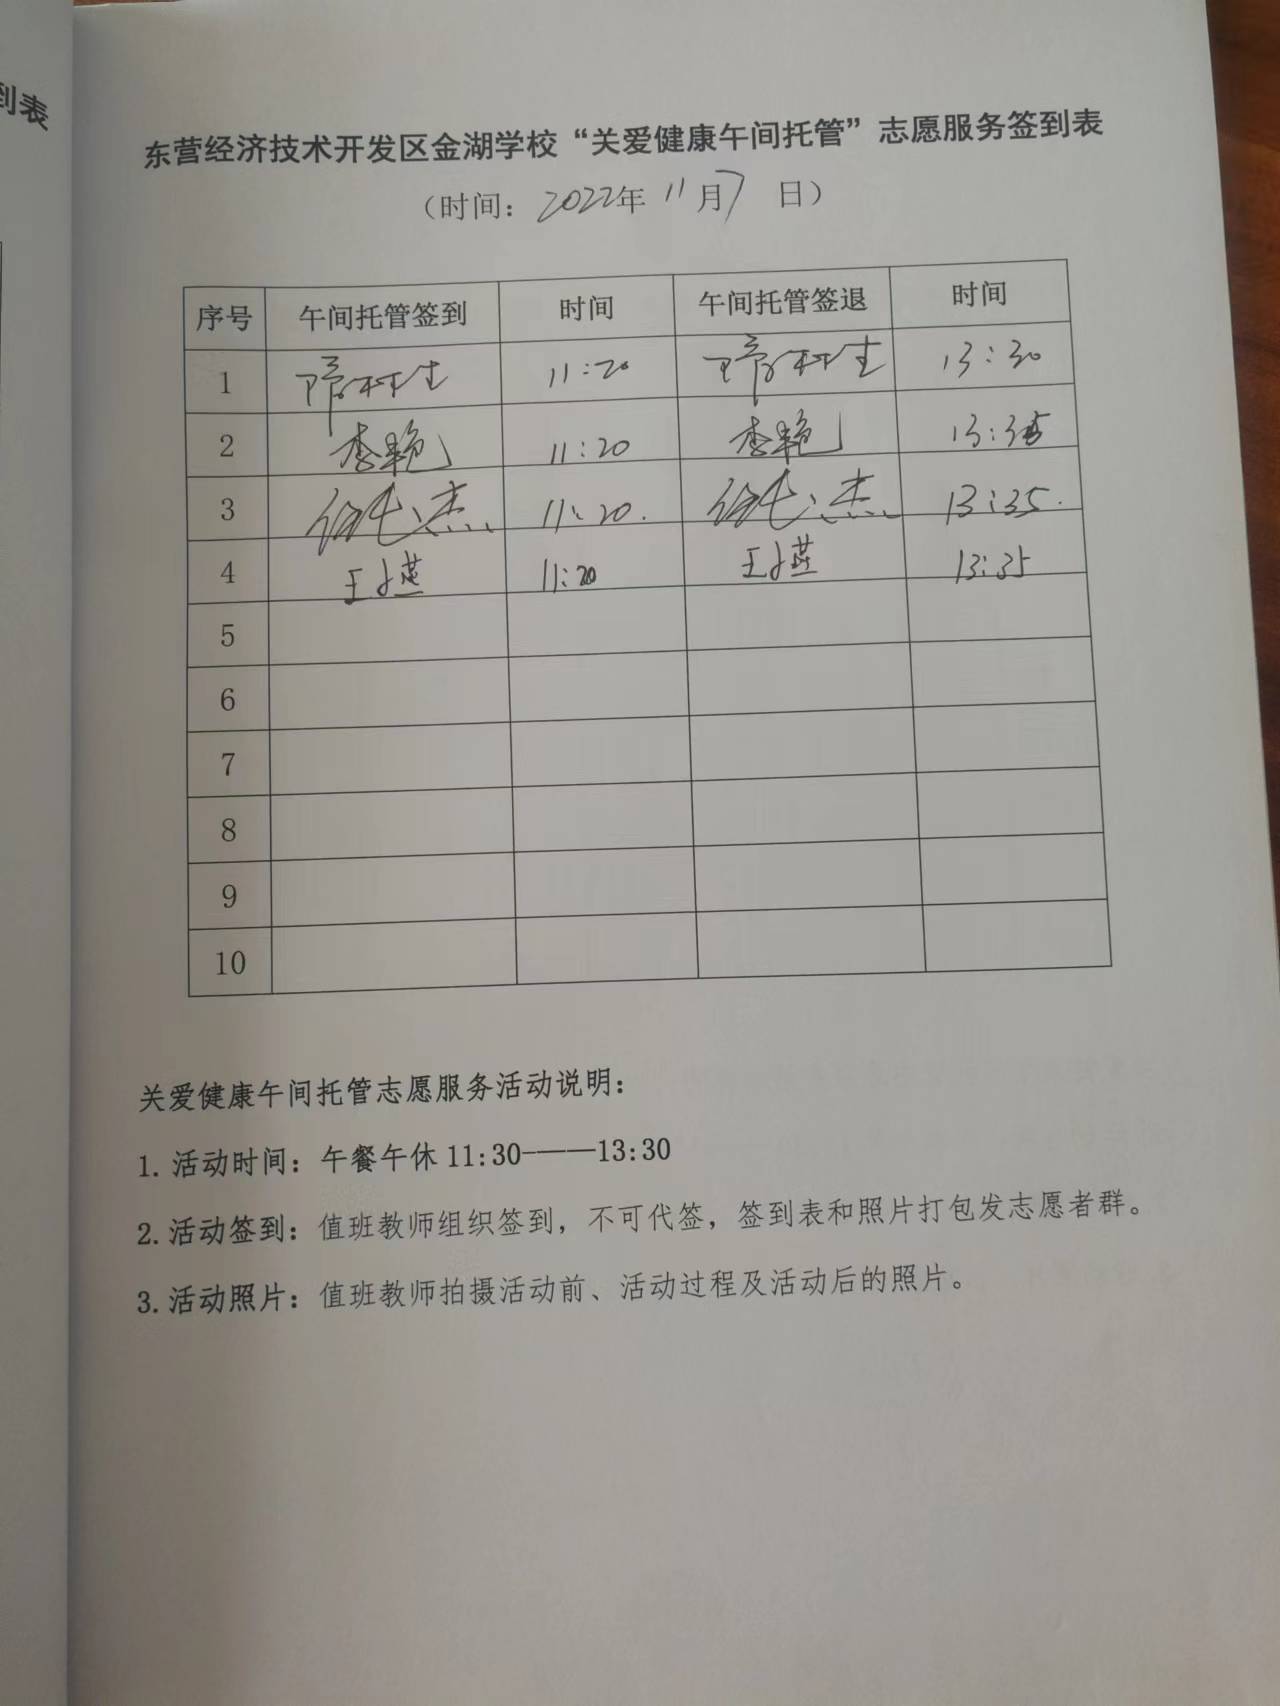 到表
东营经济技术开发区金湖学校“关爱健康午间托管”志愿服务签到表
（时间：2022年 11月7 日）
序号 午间托管签到 时间 午间托管签退 时间
1 11:20 13:30
2 李艳 11:20 李艳 13:35
3 11:20. 13:35.
4 王小燕 11:20 王小燕 13:35
5
6
7
8
9
10
关爱健康午间托管志愿服务活动说明：
1. 活动时间：午餐午休 11:30——13:30
2. 活动签到：值班教师组织签到，不可代签，签到表和照片打包发志愿者群。
3. 活动照片：值班教师拍摄活动前、活动过程及活动后的照片。